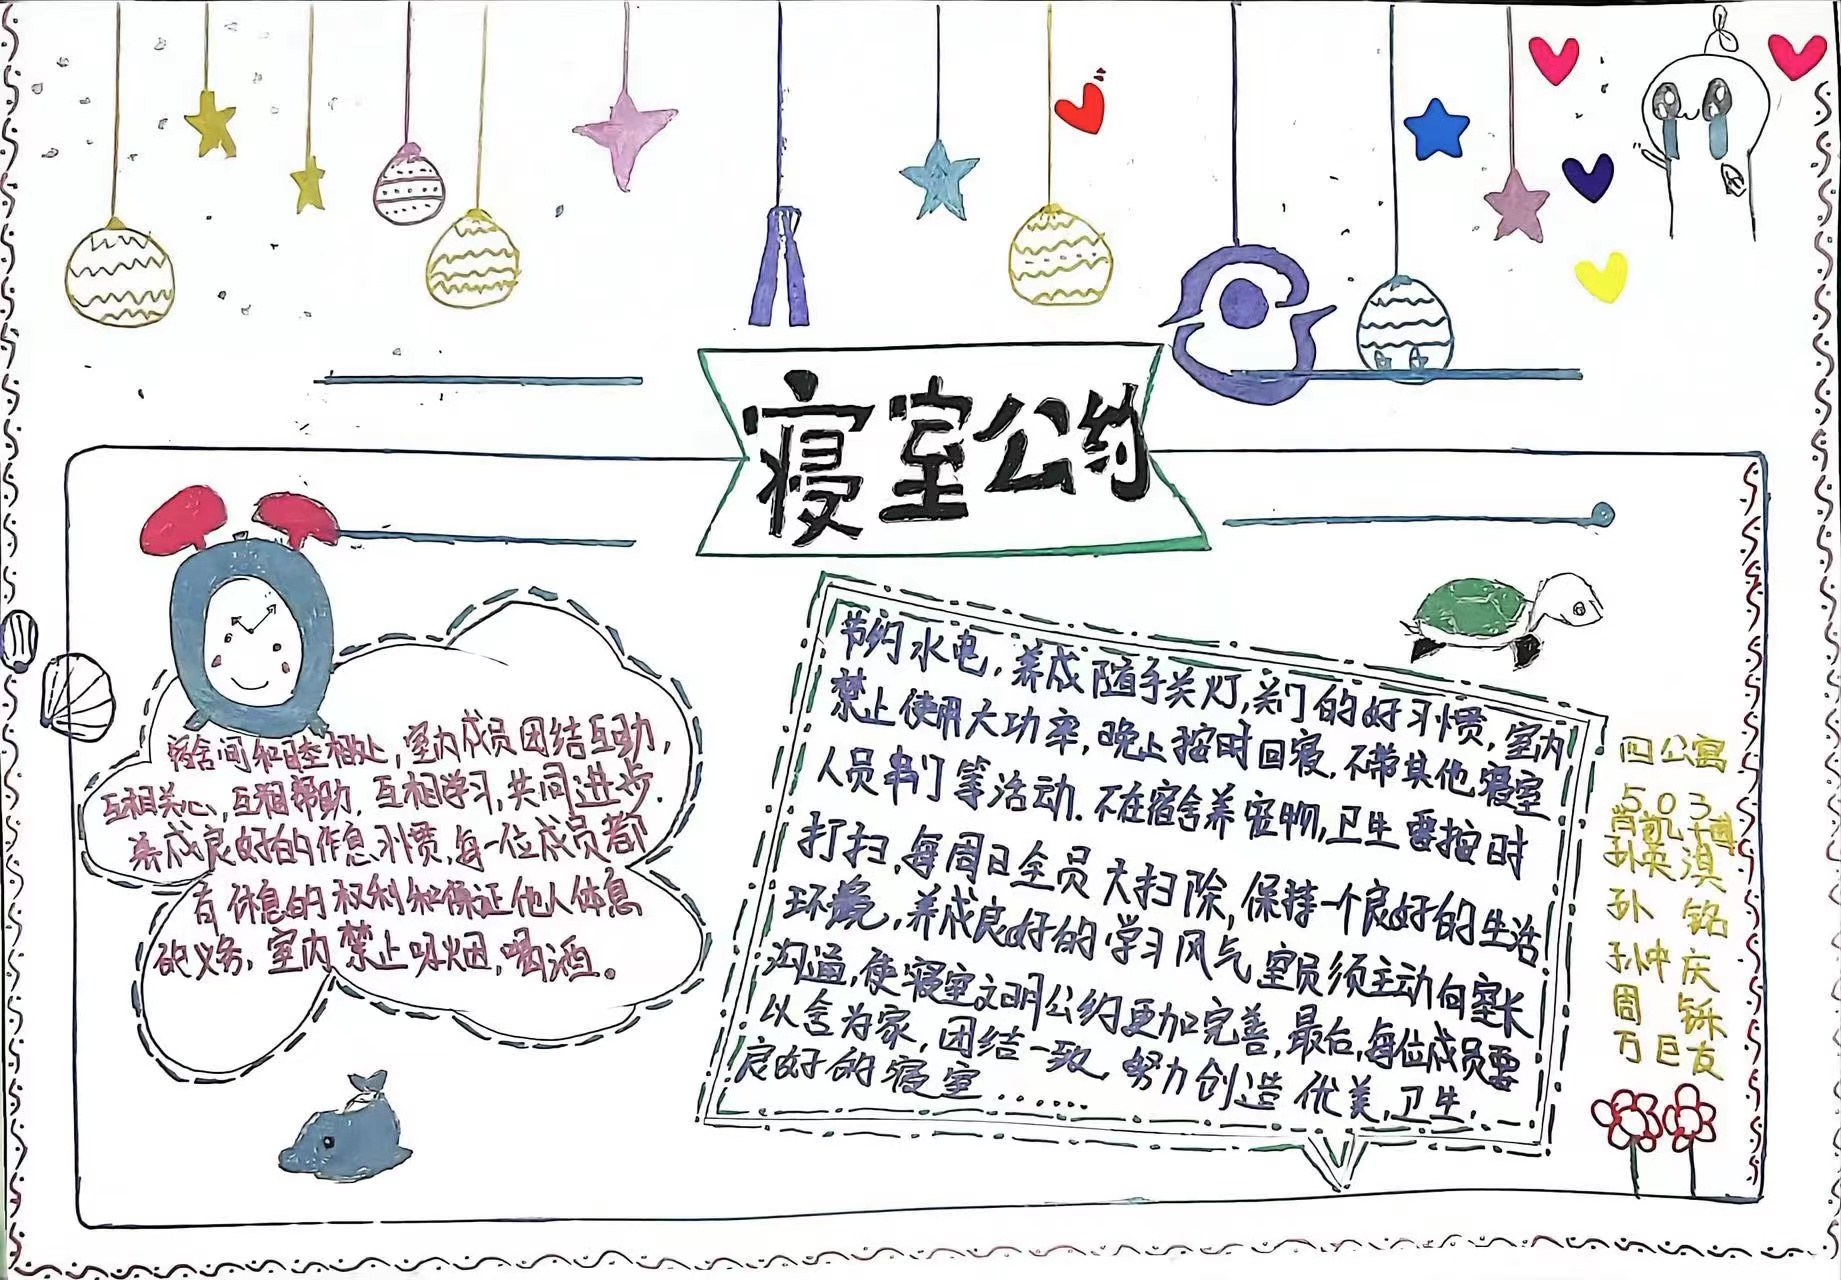 寝室公约
宿舍间和睦相处,室内成员团结互助,
互相关心,互相帮助,互相学习,共同进步.
养成良好的作息习惯,每一位成员都
有休息的权利和保证他人休息
的义务,室内禁止吸烟,喝酒。
节约水电,养成随手关灯,关门的好习惯,室内
禁止使用大功率,晚上按时回寝,不带其他寝室
人员串门等活动.不在宿舍养宠物,卫生要按时
打扫,每周日全员大扫除,保持一个良好的生活
环境,养成良好的学习风气 室员须主动向室长
沟通,使寝室文明公约更加完善,最后,每位成员要
以舍为家,团结一致,努力创造优美,卫生,
良好的寝室......
四公寓
503
肖凯博
孙英淇
孙铭
孙仲庆
周铄
万巨友